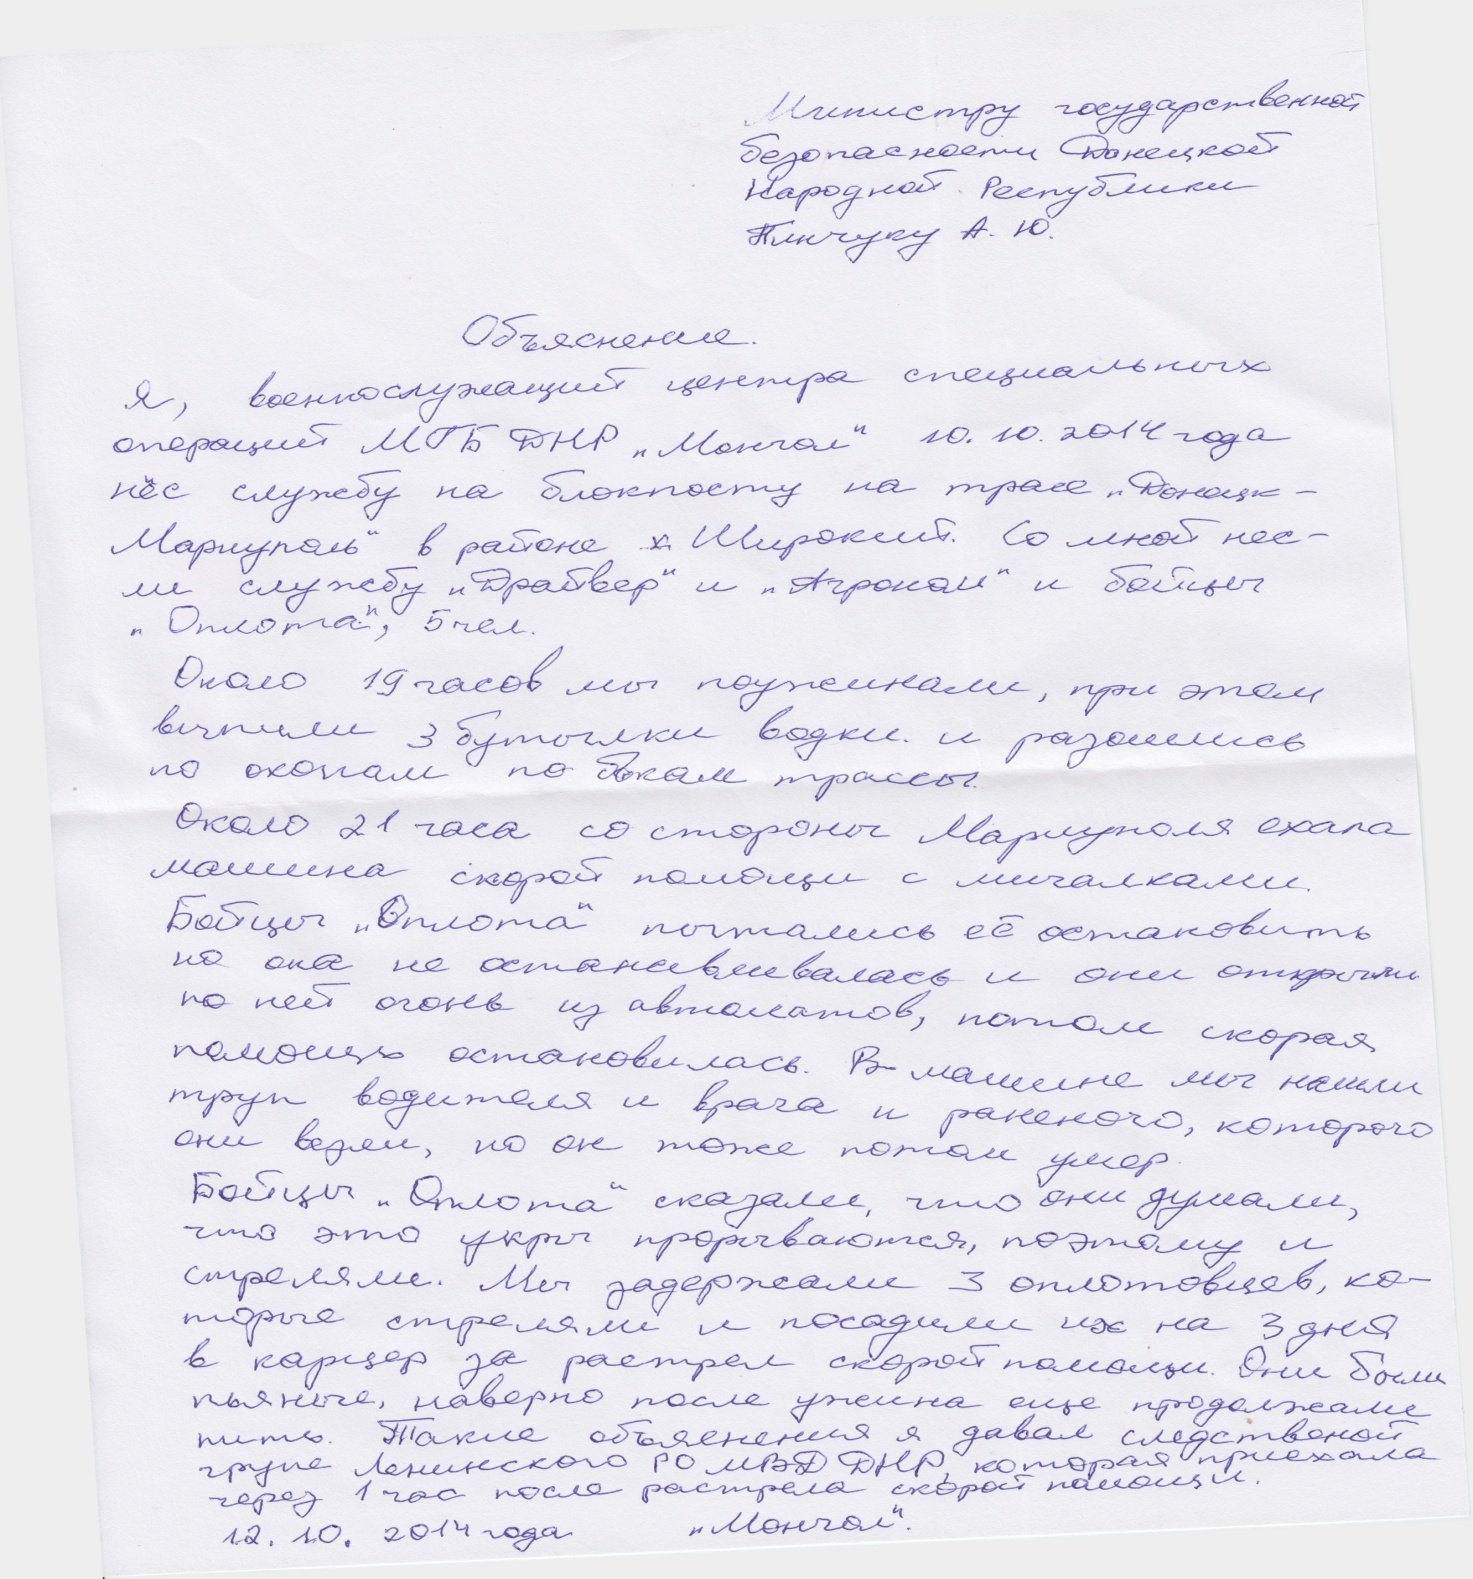 Министру государственной
безопасности Донецкой
Народной Республики
Пинчуку А. Ю.
Объяснение.
Я, военнослужащий центра специальных
операций МГБ ДНР „Монгол“ 10.10.2014 года
нёс службу на блокпосту на трасе „Донецк-
Мариуполь“ в районе х Широкий. Со мной нес-
ли службу „Драйвер“ и „Агроном“ и бойцы
„Оплота“, 5 чел.
Около 19 часов мы поужинали, при этом
выпили 3 бутылки водки. и разошлись
по окопам по бокам трассы.
Около 21 часа со стороны Мариуполя ехала
машина скорой помощи с мигалками.
Бойцы „Оплота“ пытались её остановить
но она не останавливалась и они открыли
по ней огонь из автоматов, потом скорая
помощь остановилась. В машине мы нашли
труп водителя и врача и раненого, которого
они везли, но он тоже потом умер.
Бойцы „Оплота“ сказали, что они думали,
что это укры прорываются, поэтому и
стреляли. Мы задержали 3 оплотовцев, ко-
торые стреляли и посадили их на 3 дня
в карцер за растрел скорой помощи. Они были
пьяные, наверно после ужина еще продолжали
пить. Такие объяснения я давал следственой
групе Ленинского РО МВД ДНР, которая приехала
через 1 час после растрела скорой помощи.
12.10.2014 года „Монгол“.